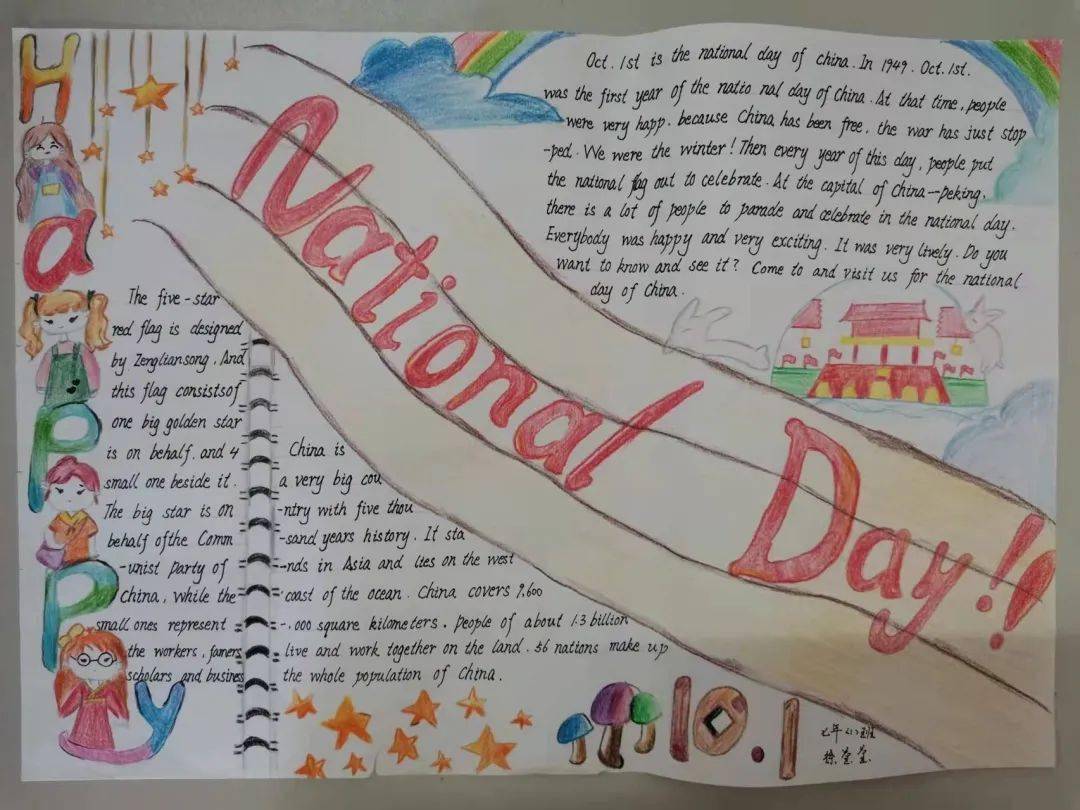 Happy
National
Day!!
Oct. 1st is the national day of china. In 1949. Oct. 1st.
was the first year of the natio nal day of China. At that time, people
were very happ. because China has been free, the war has just stop
-ped. We were the winter! Then every year of this day, people put
the national flag out to celebrate. At the capital of China--peking,
there is a lot of people to parade and celebrate in the national day.
Everybody was happy and very exciting. It was very lively. Do you
want to know and see it? Come to and visit us for the national
day of China.
The five-star
red flag is designed
by Zengliansong. And
this flag consistsof
one big golden star
is on behalf. and 4
small one beside it.
The big star is on
behalf ofthe Comm
-unist Party of
China, while the
small ones represent
the workers, famers
scholars and busines
China is
a very big cou
-ntry with five thou
-sand years history. It sta
-nds in Asia and lies on the west
coast of the ocean. China covers 9,600
-,000 square kilometers. people of about 1.3 billion
live and work together on the land. 56 nations make up
the whole population of China.
10.1
七年
班